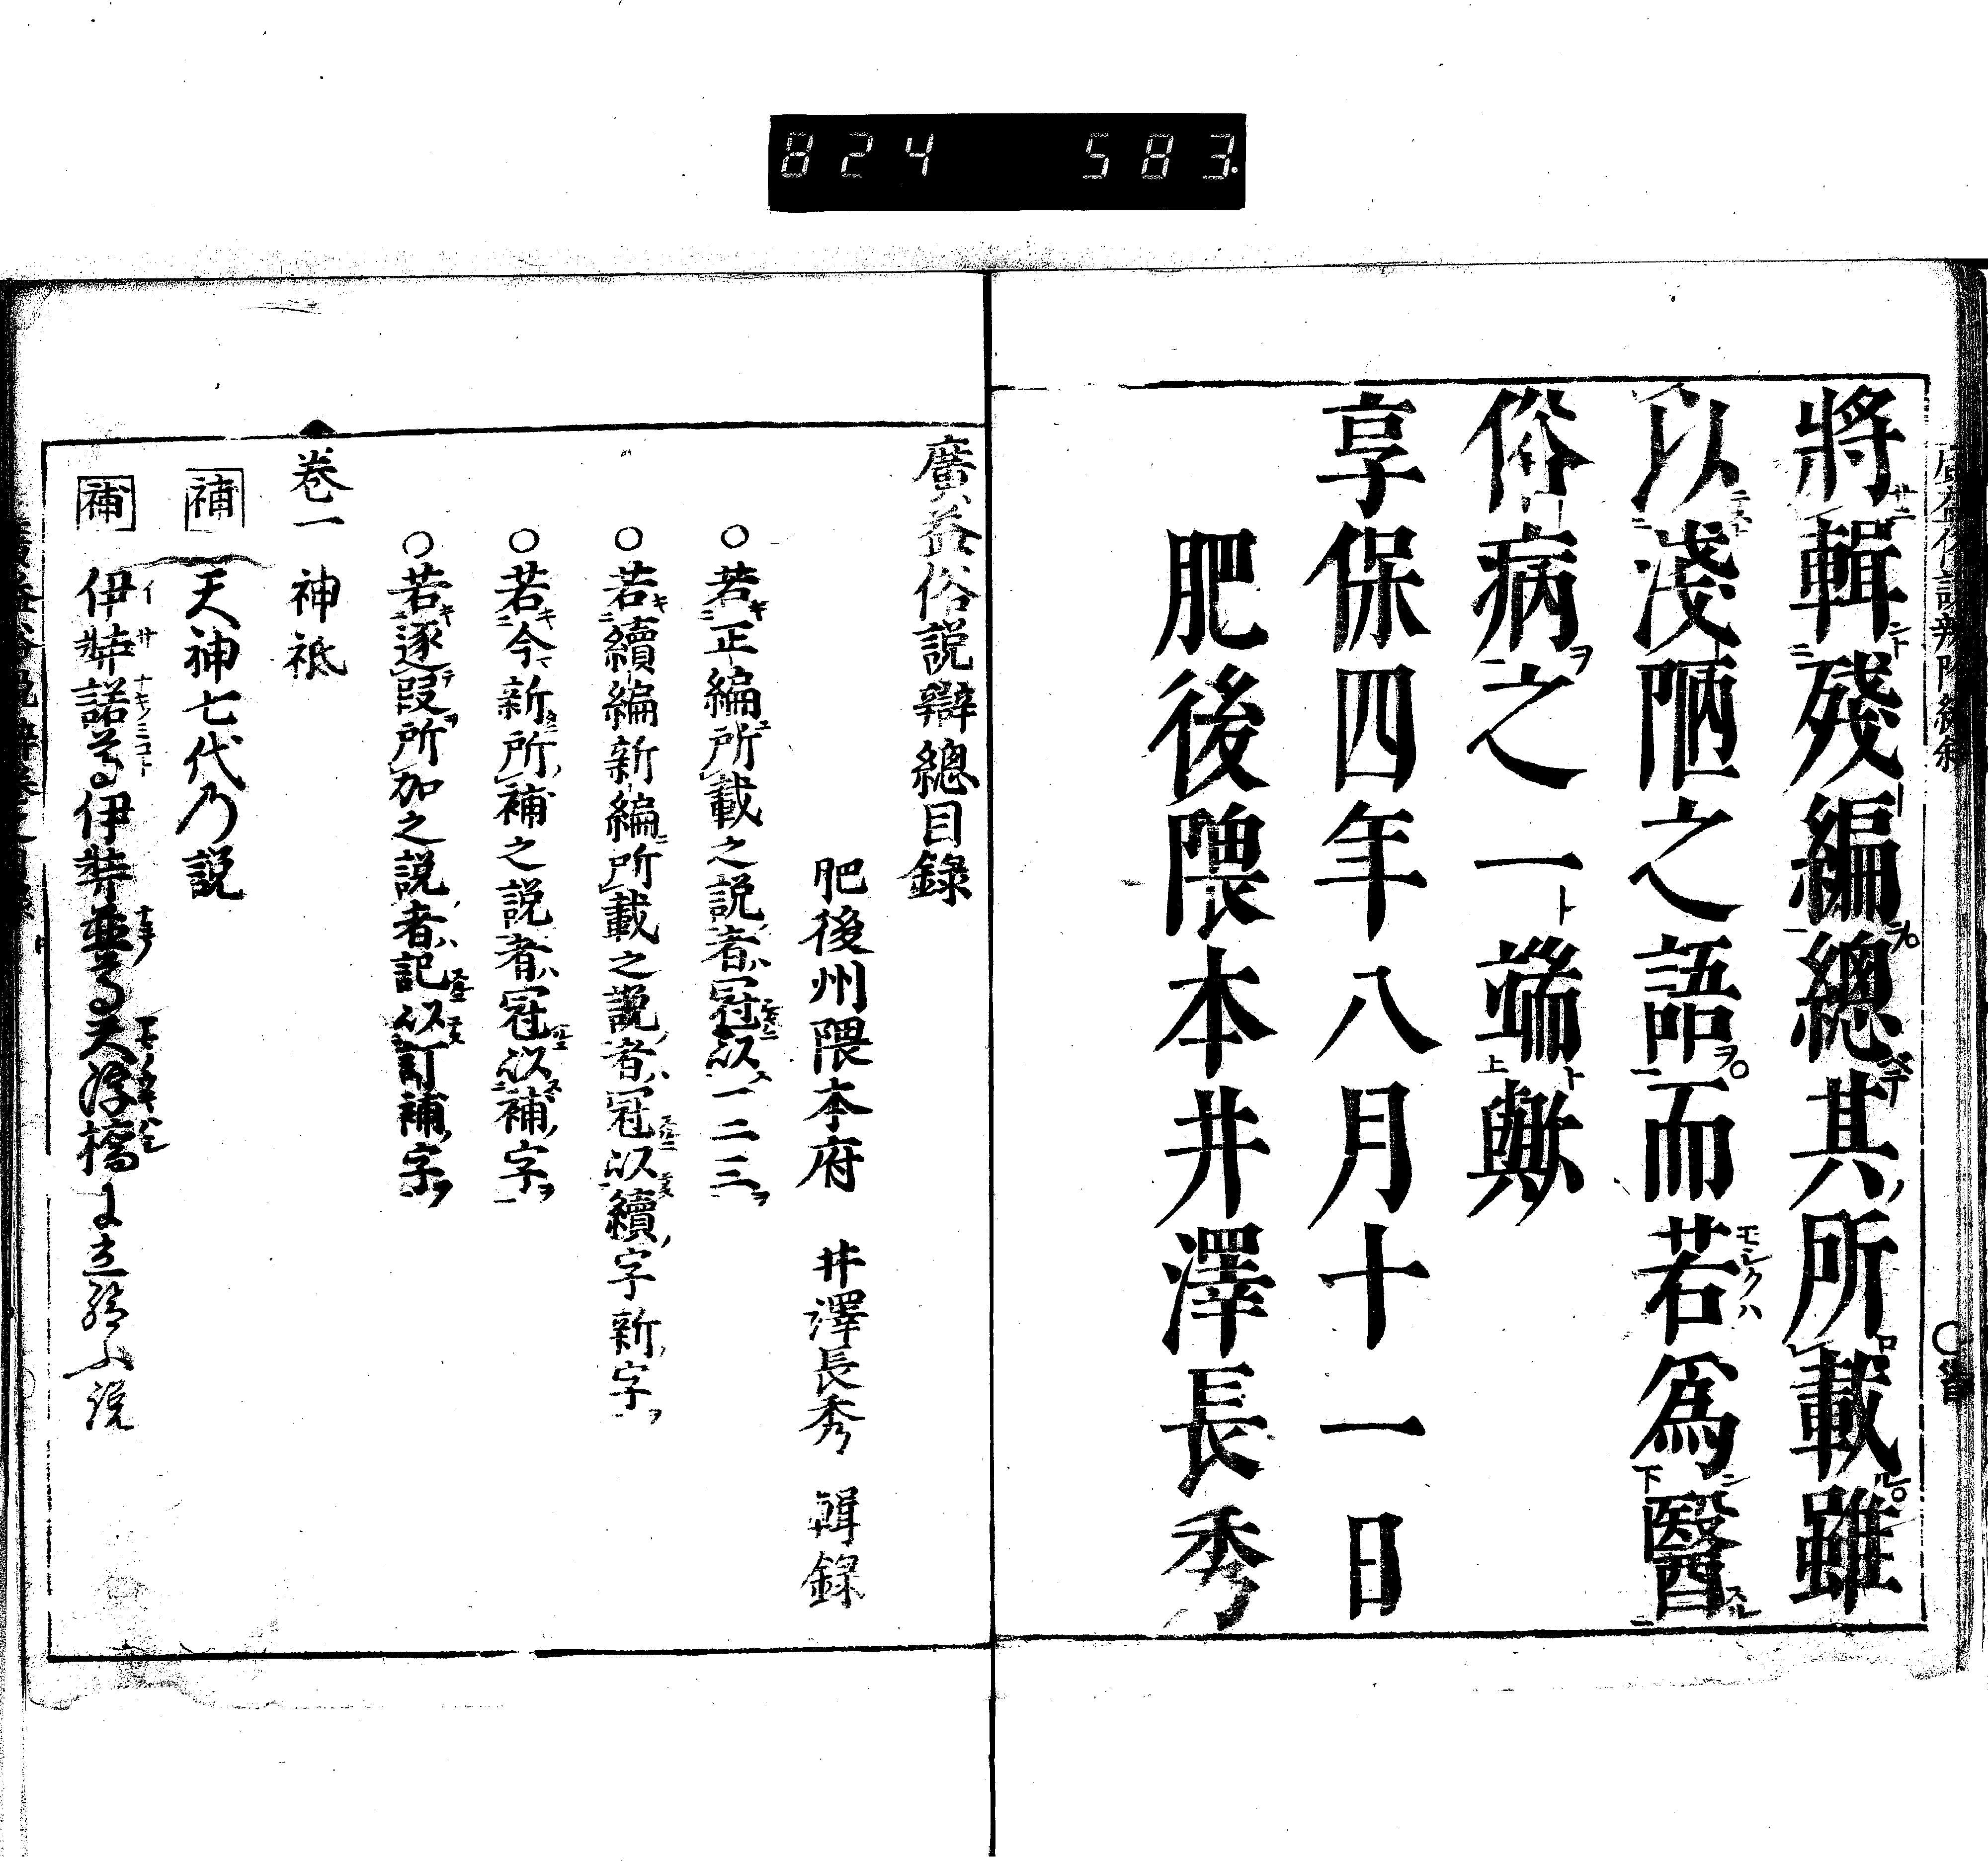 824 583.
將輯殘編總其所載雖
以淺陋之語而若爲醫
俗病之一端歟
享保四年八月十一日
肥後隈本井澤長秀
廣益俗説辯總目錄
肥後州隈本府 井澤長秀 輯錄
○若正編所載之説者冠以一二三
○若續編新編所載之説者冠以續字新字
○若今新所補之説者冠以補字
○若逐段所加之説者記以訂補字
卷一 神祇
補 天神七代乃説
補 伊弉諾尊伊弉並尊天浮橋に立給ふ説